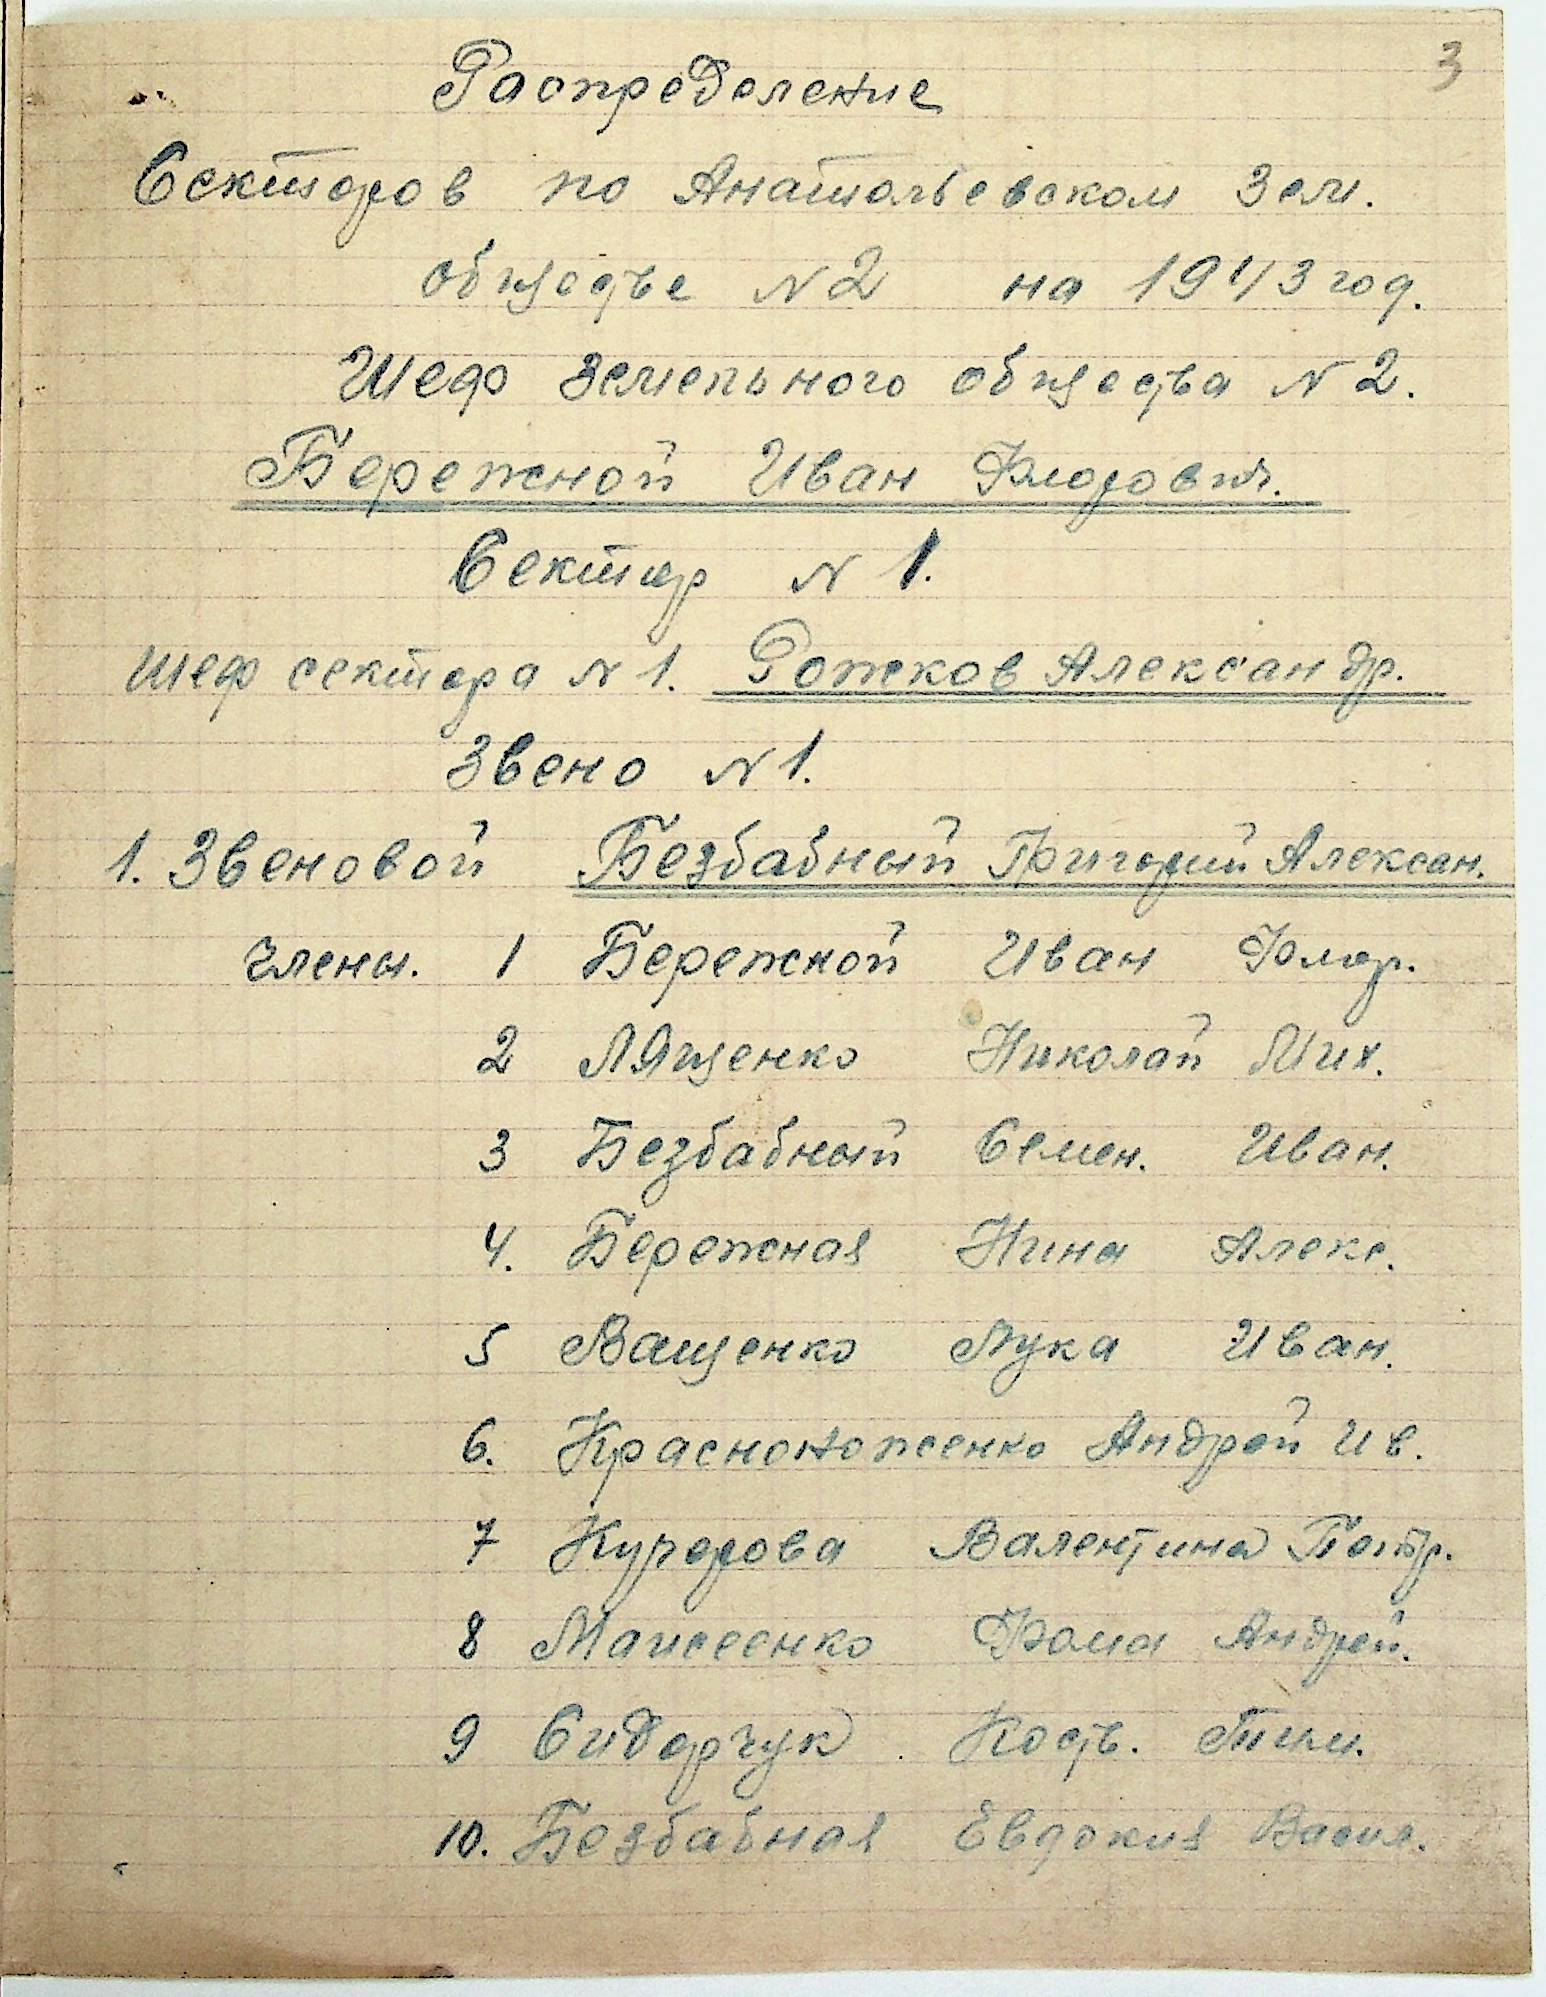 3
Распределение
Секторов по Анатольевском Зем.
обществе N2 на 1943 год.
Шеф Земельного общества N2.
Бережной Иван Флорович.
Сектор N1.
Шеф сектора N1. Рожков Александр.
Звено N1.
1. Звеновой Безбабный Григорий Алексан.
Члены. 1 Бережной Иван Флор.
2 Лященко Николай Мих.
3 Безбабный Семен. Иван.
4. Бережная Нина Алекс.
5 Ващенко Лука Иван.
6. Красноноженко Андрей Ив.
7 Кучерова Валентина Петр.
8 Маисеенко Фома Андрей.
9 Сидорчук Коств. Тим.
10. Безбабная Евдокия Васил.